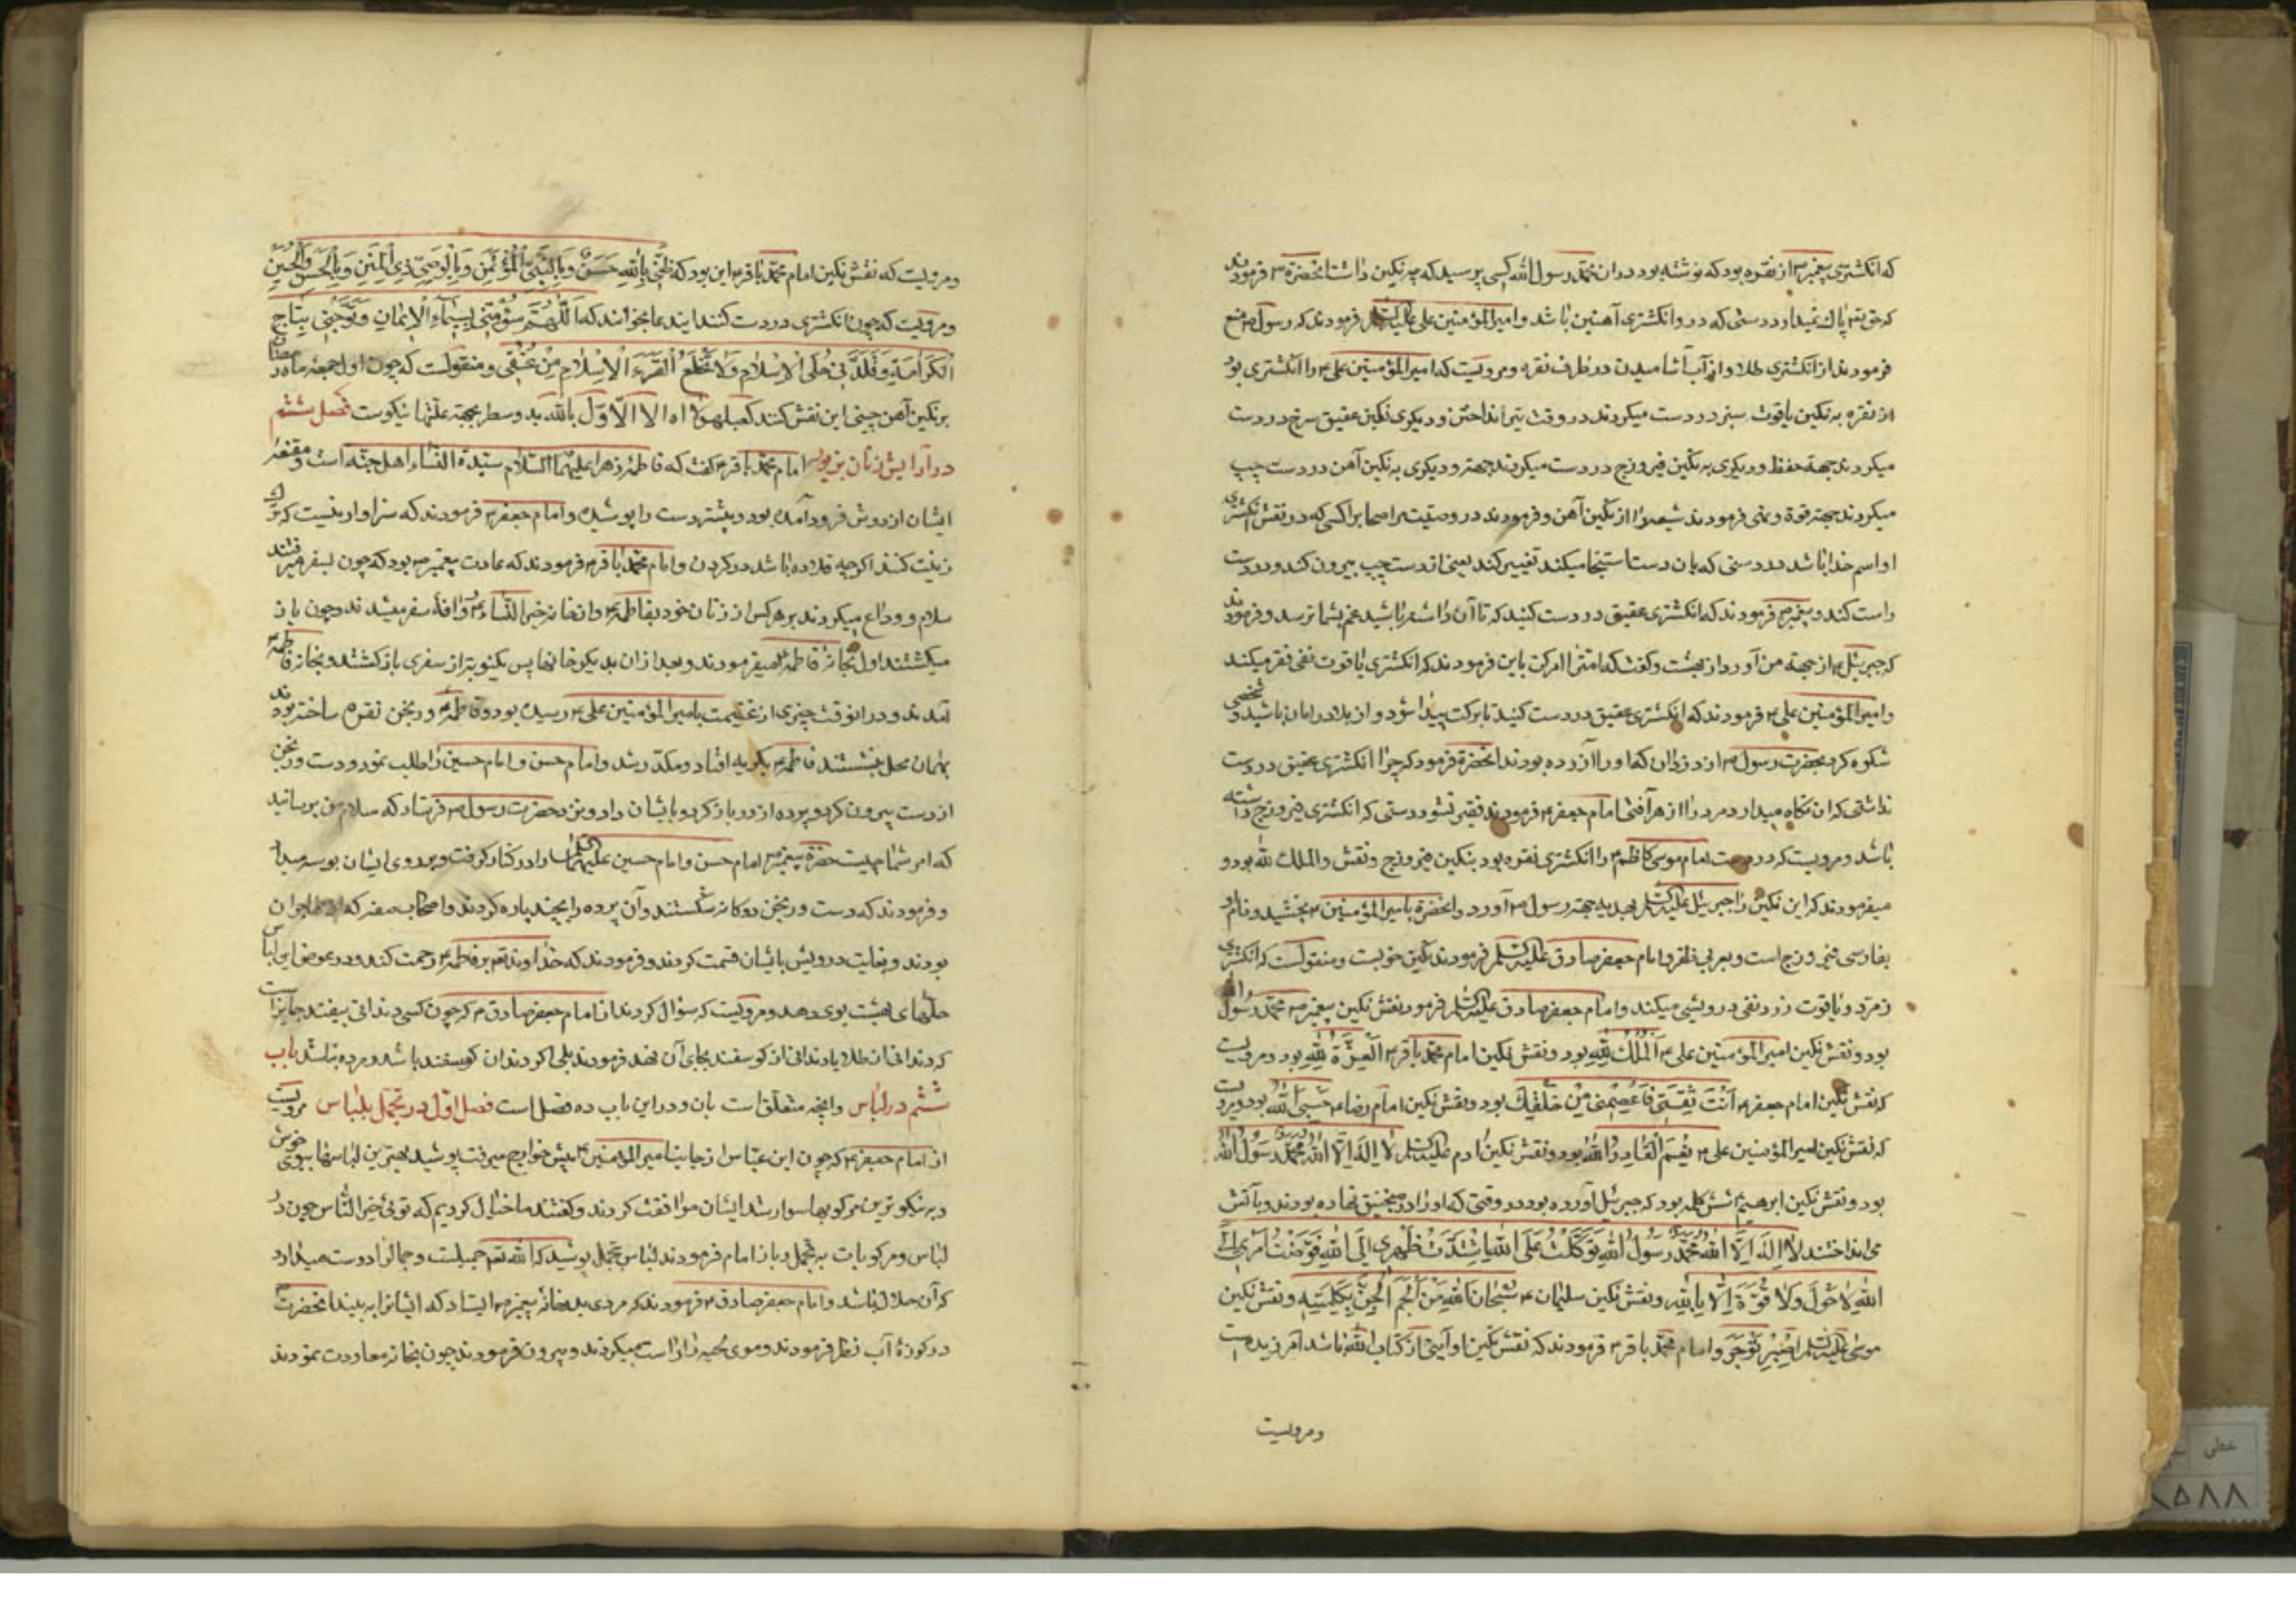 که انکشتری پیغمبر ص از نقره بود که نوشته بود دران محمد رسول الله کسی پرسید که چه نکین داشت انحضرة ص فرمودند
که حق تع پاك نمیدارد دستی که در او انکشتری آهنین باشد و امیرالمؤمنین علی علیه السلم فرمودند که رسول ص منع
فرمودند از انکشتری طلا و از آب آشامیدن در ظرف نقره و مرویست که امیرالمؤمنین علی ع را انکشتری بود
از نقره به نکین یاقوت سبز در دست میکردند در وقت تیر انداختن و دیکری نکین عقیق سرخ در دست
میکردند جهة حفظ و دیکری به نکین فیروزج در دست میکردند جهة و دیکری به نکین آهن در دست چپ
میکردند جهة قوة و نهی فرمودند شیعه را از نکین آهن و فرمودند در وصیت مر اصحاب را کسی که در نقش انکشتری
او اسم خدا باشد در دستی که بان دست استنجا میکند تغییر کند یعنی از دست چپ بیرون کند و در دست
راست کند و پیغمبر ص فرمودند که انکشتری عقیق در دست کنید که تا آن را داشته باشید غم بشما نرسد و فرمودند
که جبرئیل ع از جهة من آورد از بهشت و کفت که امتت را امر کن باین فرمودند که انکشتری یاقوت نفی فقر میکند
و امیرالمؤمنین علی ع فرمودند که انکشتری عقیق در دست کنید تا برکت پیدا شود و از بلا در امان باشید و شخصی
شکوه کرد بحضرت رسول ص از دزدان که او را آزرده بودند انحضرة فرمود که چرا انکشتری عقیق در دست
نداشتی که ان نکاه میدارد مرد را از هر آفتی امام جعفر ع فرمودند فقیر نشود دستی که انکشتری فیروزج داشته
باشد و مرویست که در دست امام موسی کاظم ع را انکشتری نقره بود بنکین فیروزج و نقش و الملك لله بود و
میفرمودند که این نکین را جبرئیل علیه السلم بهدیه جهة رسول ص آورد و انحضرة بامیرالمؤمنین ع بخشید و نام او
بفارسی فیروزج است و بعربی ظفر و امام جعفر صادق علیه السلم فرمودند نکین خوبست و منقولست که انکشتری
زمرد و یاقوت زرد نفی درویشی میکند و امام جعفر صادق علیه السلم فرمود نقش نکین پیغمبر ص محمد رسول الله
بود و نقش نکین امیرالمؤمنین علی ع الملك لله بود و نقش نکین امام محمد باقر ع العزة لله بود و مرویست
که نقش نکین امام جعفر ع انت ثقتی فاعصمنی من خلقك بود و نقش نکین امام رضا ع حسبی الله بود و مرویست
که نقش نکین امیرالمؤمنین علی ع نعم القادر الله بود و نقش نکین ادم علیه السلم لا اله الا الله محمد رسول الله
بود و نقش نکین ابرهیم ع شش کلمه بود که جبرئیل آورده بود در وقتی که او را در منجنیق نهاده بودند و بآتش
می انداختند لا اله الا الله محمد رسول الله توکلت علی الله اشتدت ظهری الی الله فوضت امری الی
الله لا حول ولا قوة الا بالله و نقش نکین سلیمان ع سبحان الله من الجم الجن بکلمته و نقش نکین
موسی علیه السلم اصبر توجر و امام محمد باقر ع فرمودند که نقش نکین او آیتی از کتاب الله باشد آمرزیده است
ومرویست
ومرویست که نقش نکین امام محمد باقر ع این بود که ظنی بالله حسن وبالنبی المؤتمن وبالوصی ذی المنن وبالحسن والحسین
و مرویست که چون انکشتری در دست کنند ایند عا بخوانند که اللهم سومنی بسیماء الایمان وتوجنی بتاج
الکرامة وقلدنی حلی الاسلام ولا تخلع الاسلام من عنقی و منقولست که چون اول جمعه ماه رمضان
بر نکین آهن چینی این نقش کنند بالله بد و سطر بجهة علتها نیکوست فصل ششم
در آرایش زنان بزیور امام محمد باقر ع کفت که فاطمه زهرا علیهما السلام سیدة النساء اهل جنة است و مقنعه
ایشان از دوش فرود آمده بود و بیشتر دست را پوشیده و امام جعفر ع فرمودند که سزاوار نیست که ترك
زینت کنند اکرچه قلاده باشد در کردن و امام محمد باقر ع فرمودند که عادت پیغمبر ص بود که چون بسفر میرفتند
سلام و وداع میکردند بر هر کس از زنان خود بفاطمه ع وانخانه خیر النساء ع روانه سفر میشدند و چون باز
میکشتند اول بخانه فاطمه ع میفرمودند و بعد از ان بدیکر خانها پس یکنوبت از سفری باز کشتند و بخانه فاطمه ع
آمدند و در انوقت چیزی از غنیمت بامیرالمؤمنین علی ع رسیده بود و فاطمه ع ورنجن نقره ساخته بودند
بهمان محل بنشستند فاطمه ع بکریه افتاد و مکدر شد و امام حسن و امام حسین را طلب نمود و دست ورنجن
از دست بیرون کرد و پرده از در باز کرد و بایشان داد و بنزد حضرت رسول ص فرستاد که سلام من برسانید
که امر شما چیست حضرة پیغمبر ص امام حسن و امام حسین علیهما السلم را در کنار کرفت و بر روی ایشان بوسه میداد
و فرمودند که دست ورنجن دو کانه شکستند و آن پرده را بچند پاره کردند و اصحاب صفه که
بودند و بغایت درویش بایشان قسمت کردند و فرمودند که خداوند تع بر فاطمه ع رحمت کند و در عوض این لباس
حلهای بهشت بوی دهد و مرویست که سؤال کردند از امام جعفر صادق ع که چون کسی دندانی بیفتد جایز است
که دندانی از طلا یا دندانی از کوسفند بجای آن نهد فرمودند بلی اکر دندان کوسفند باشد و مرده نباشد باب
ششم در لباس وانچه متعلق است بان و در این باب ده فصل است فصل اول در تجمل بلباس مرویست
از امام جعفر ع که چون ابن عباس از جانب امیرالمؤمنین ع پیش خوارج میرفت پوشید بهترین لباسها ببوی خوش
و به نیکوترین مرکوبها سوار شد ایشان موافقت کردند و کفتند ما خیال کردیم که توئی خیر الناس چون در
لباس و مرکوبات به تجمل و باز امام فرمودند لباس تجمل بپوشید که الله تع جمیلست و جمال را دوست میدارد
که آن حلال باشد و امام جعفر صادق ع فرمودند که مردی بدرخانه پیغمبر ص ایستاد که ایشانرا به بیند انحضرت
در کوزهٔ آب نظر فرمودند و موی لحیه را راست میکردند و بیرون فرمودند چون بخانه معاودت نمودند
خطی
۸۵۸۸